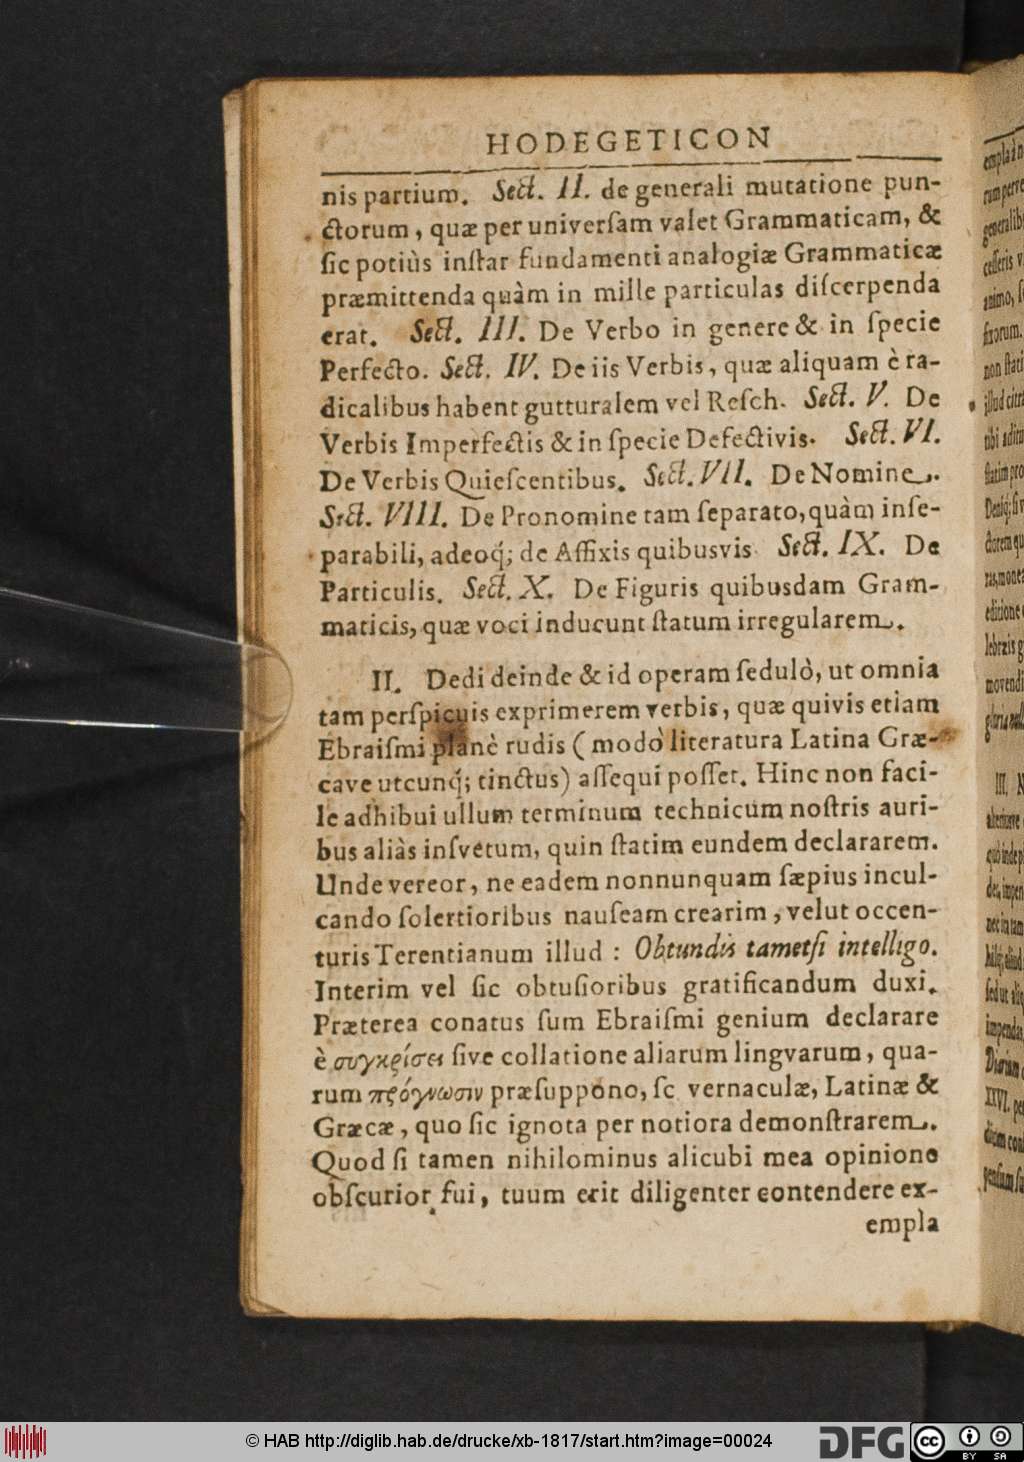 HODEGETICON
nis partium. Sect. II. de generali mutatione pun-
ctorum, quæ per univerſam valet Grammaticam, &
ſic potiùs inſtar fundamenti analogiæ Grammaticæ
præmittenda quàm in mille particulas diſcerpenda
erat. Sect. III. De Verbo in genere & in ſpecie
Perfecto. Sect. IV. De iis Verbis, quæ aliquam è ra-
dicalibus habent gutturalem vel Reſch. Sect. V. De
Verbis Imperfectis & in ſpecie Defectivis. Sect. VI.
De Verbis Quieſcentibus. Sect. VII. De Nomine.
Sect. VIII. De Pronomine tam ſeparato, quàm inſe-
parabili, adeoq́; de Affixis quibusvis Sect. IX. De
Particulis. Sect. X. De Figuris quibusdam Gram-
maticis, quæ voci inducunt ſtatum irregularem.
II. Dedi deinde & id operam ſedulò, ut omnia
tam perſpicuis exprimerem verbis, quæ quivis etiam
Ebraiſmi planè rudis (modò literatura Latina Græ-
cave utcunq́; tinctus) aſſequi poſſet. Hinc non faci-
le adhibui ullum terminum technicum noſtris auri-
bus aliàs inſvetum, quin ſtatim eundem declararem.
Unde vereor, ne eadem nonnunquam ſæpius incul-
cando ſolertioribus nauſeam crearim, velut occen-
turis Terentianum illud : Obtundis tametſi intelligo.
Interim vel ſic obtuſioribus gratificandum duxi.
Præterea conatus ſum Ebraiſmi genium declarare
è συγκρίσει ſive collatione aliarum lingvarum, qua-
rum πρόγνωσιν præſuppono, ſc vernaculæ, Latinæ &
Græcæ, quo ſic ignota per notiora demonſtrarem.
Quod ſi tamen nihilominus alicubi mea opinione
obſcurior fui, tuum erit diligenter contendere ex-
empla
© HAB http://diglib.hab.de/drucke/xb-1817/start.htm?image=00024
DFG
cc BY SA